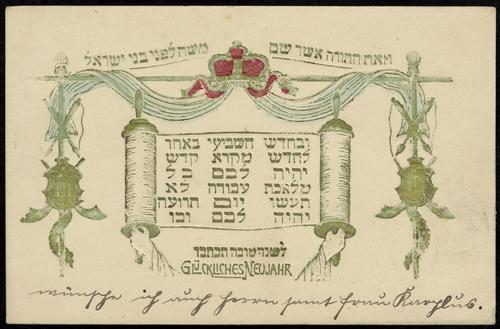 וזאת התורה אשר שם משה לפני בני ישראל
ובחדש השביעי באחד
לחדש מקרא קדש
יהיה לכם כל
מלאכת עבודה לא
תעשו יום תרועה
יהיה לכם וכו
לשנה טובה תכתבו
GLÜCKLICHES NEUJAHR
wünsche ich auch Herrn samt Frau Karplus.